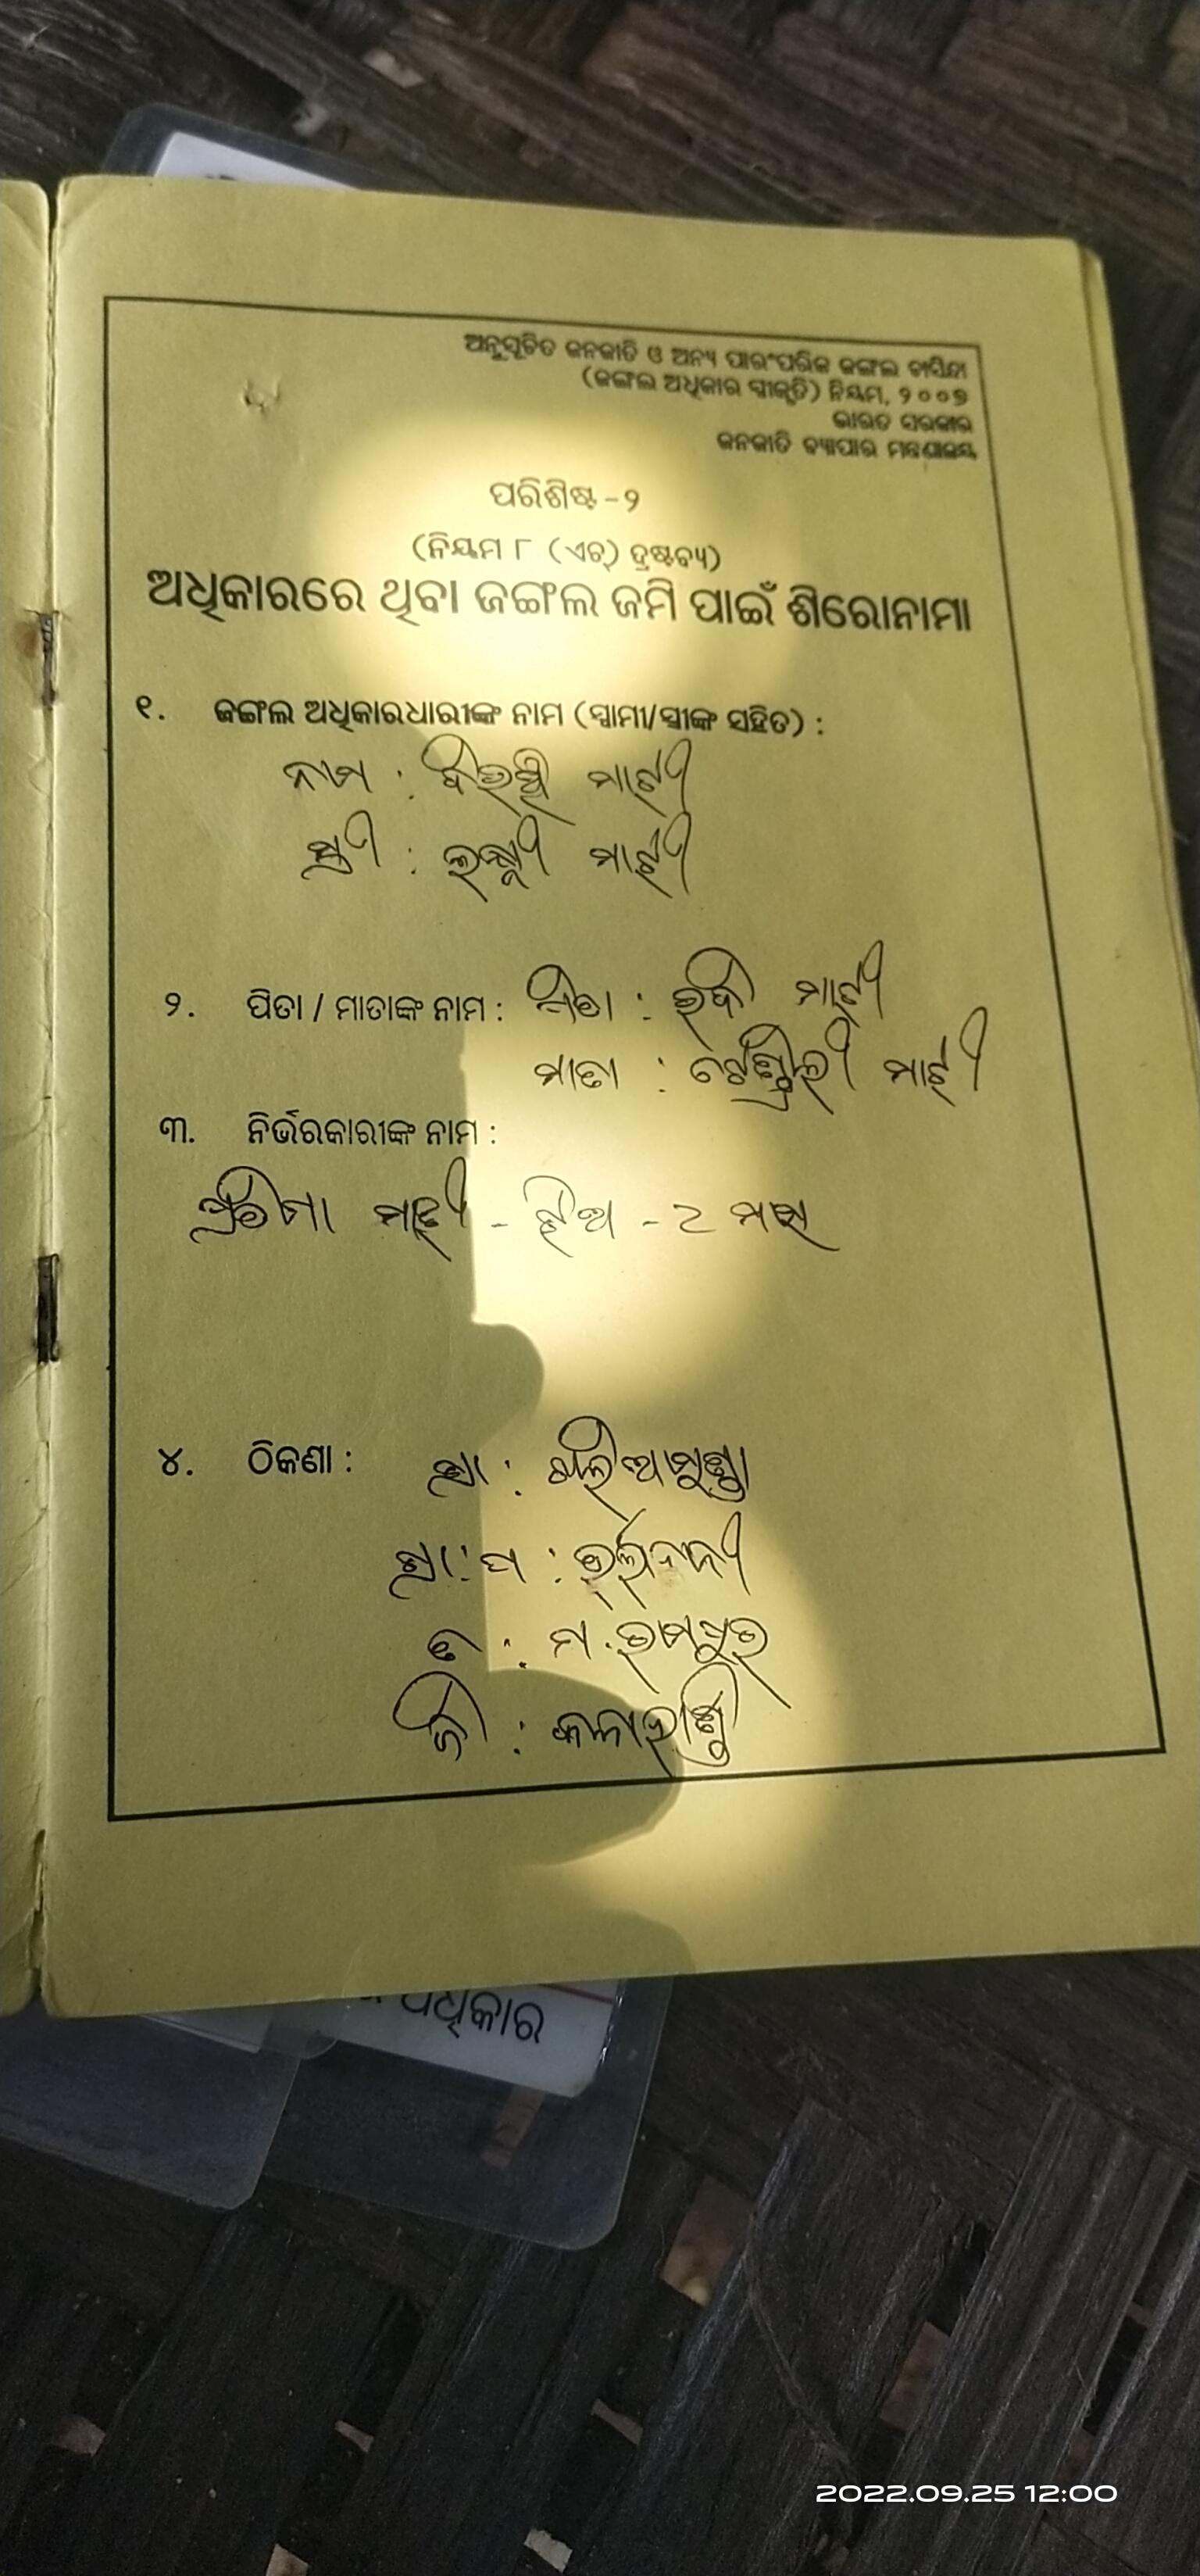 ଅନୁସୂଚିତ ଜନଜାତି ଓ ଅନ୍ୟ ପାରଂପରିକ ଜଙ୍ଗଲ ବାସିନ୍ଦା
(ଜଙ୍ଗଲ ଅଧିକାର ସ୍ୱୀକୃତି) ନିୟମ, ୨୦୦୭
ଭାରତ ସରକାର
ଜନଜାତି ବ୍ୟାପାର ମନ୍ତ୍ରଣାଳୟ
ପରିଶିଷ୍ଟ - ୨
(ନିୟମ ୮ (ଏଚ୍) ଦ୍ରଷ୍ଟବ୍ୟ)
ଅଧିକାରରେ ଥିବା ଜଙ୍ଗଲ ଜମି ପାଇଁ ଶିରୋନାମା
୧. ଜଙ୍ଗଲ ଅଧିକାରଧାରୀଙ୍କ ନାମ (ସ୍ୱାମୀ/ସ୍ତ୍ରୀଙ୍କ ସହିତ) :
ନାମ : ମାଝୀ
ସ୍ତ୍ରୀ : ମାଝୀ
୨. ପିତା / ମାତାଙ୍କ ନାମ : ପିତା : ମାଝୀ
ମାତା : ମାଝୀ
୩. ନିର୍ଭରକାରୀଙ୍କ ନାମ :
ମାଝୀ - ଝିଅ - ୮ ମାସ
୪. ଠିକଣା : ଗ୍ରା :
ଗ୍ରା : ପ :
ବ : ମ. ରାମପୁର
ଜି : କଳାହାଣ୍ଡି
ଅଧିକାର
2022.09.25 12:00